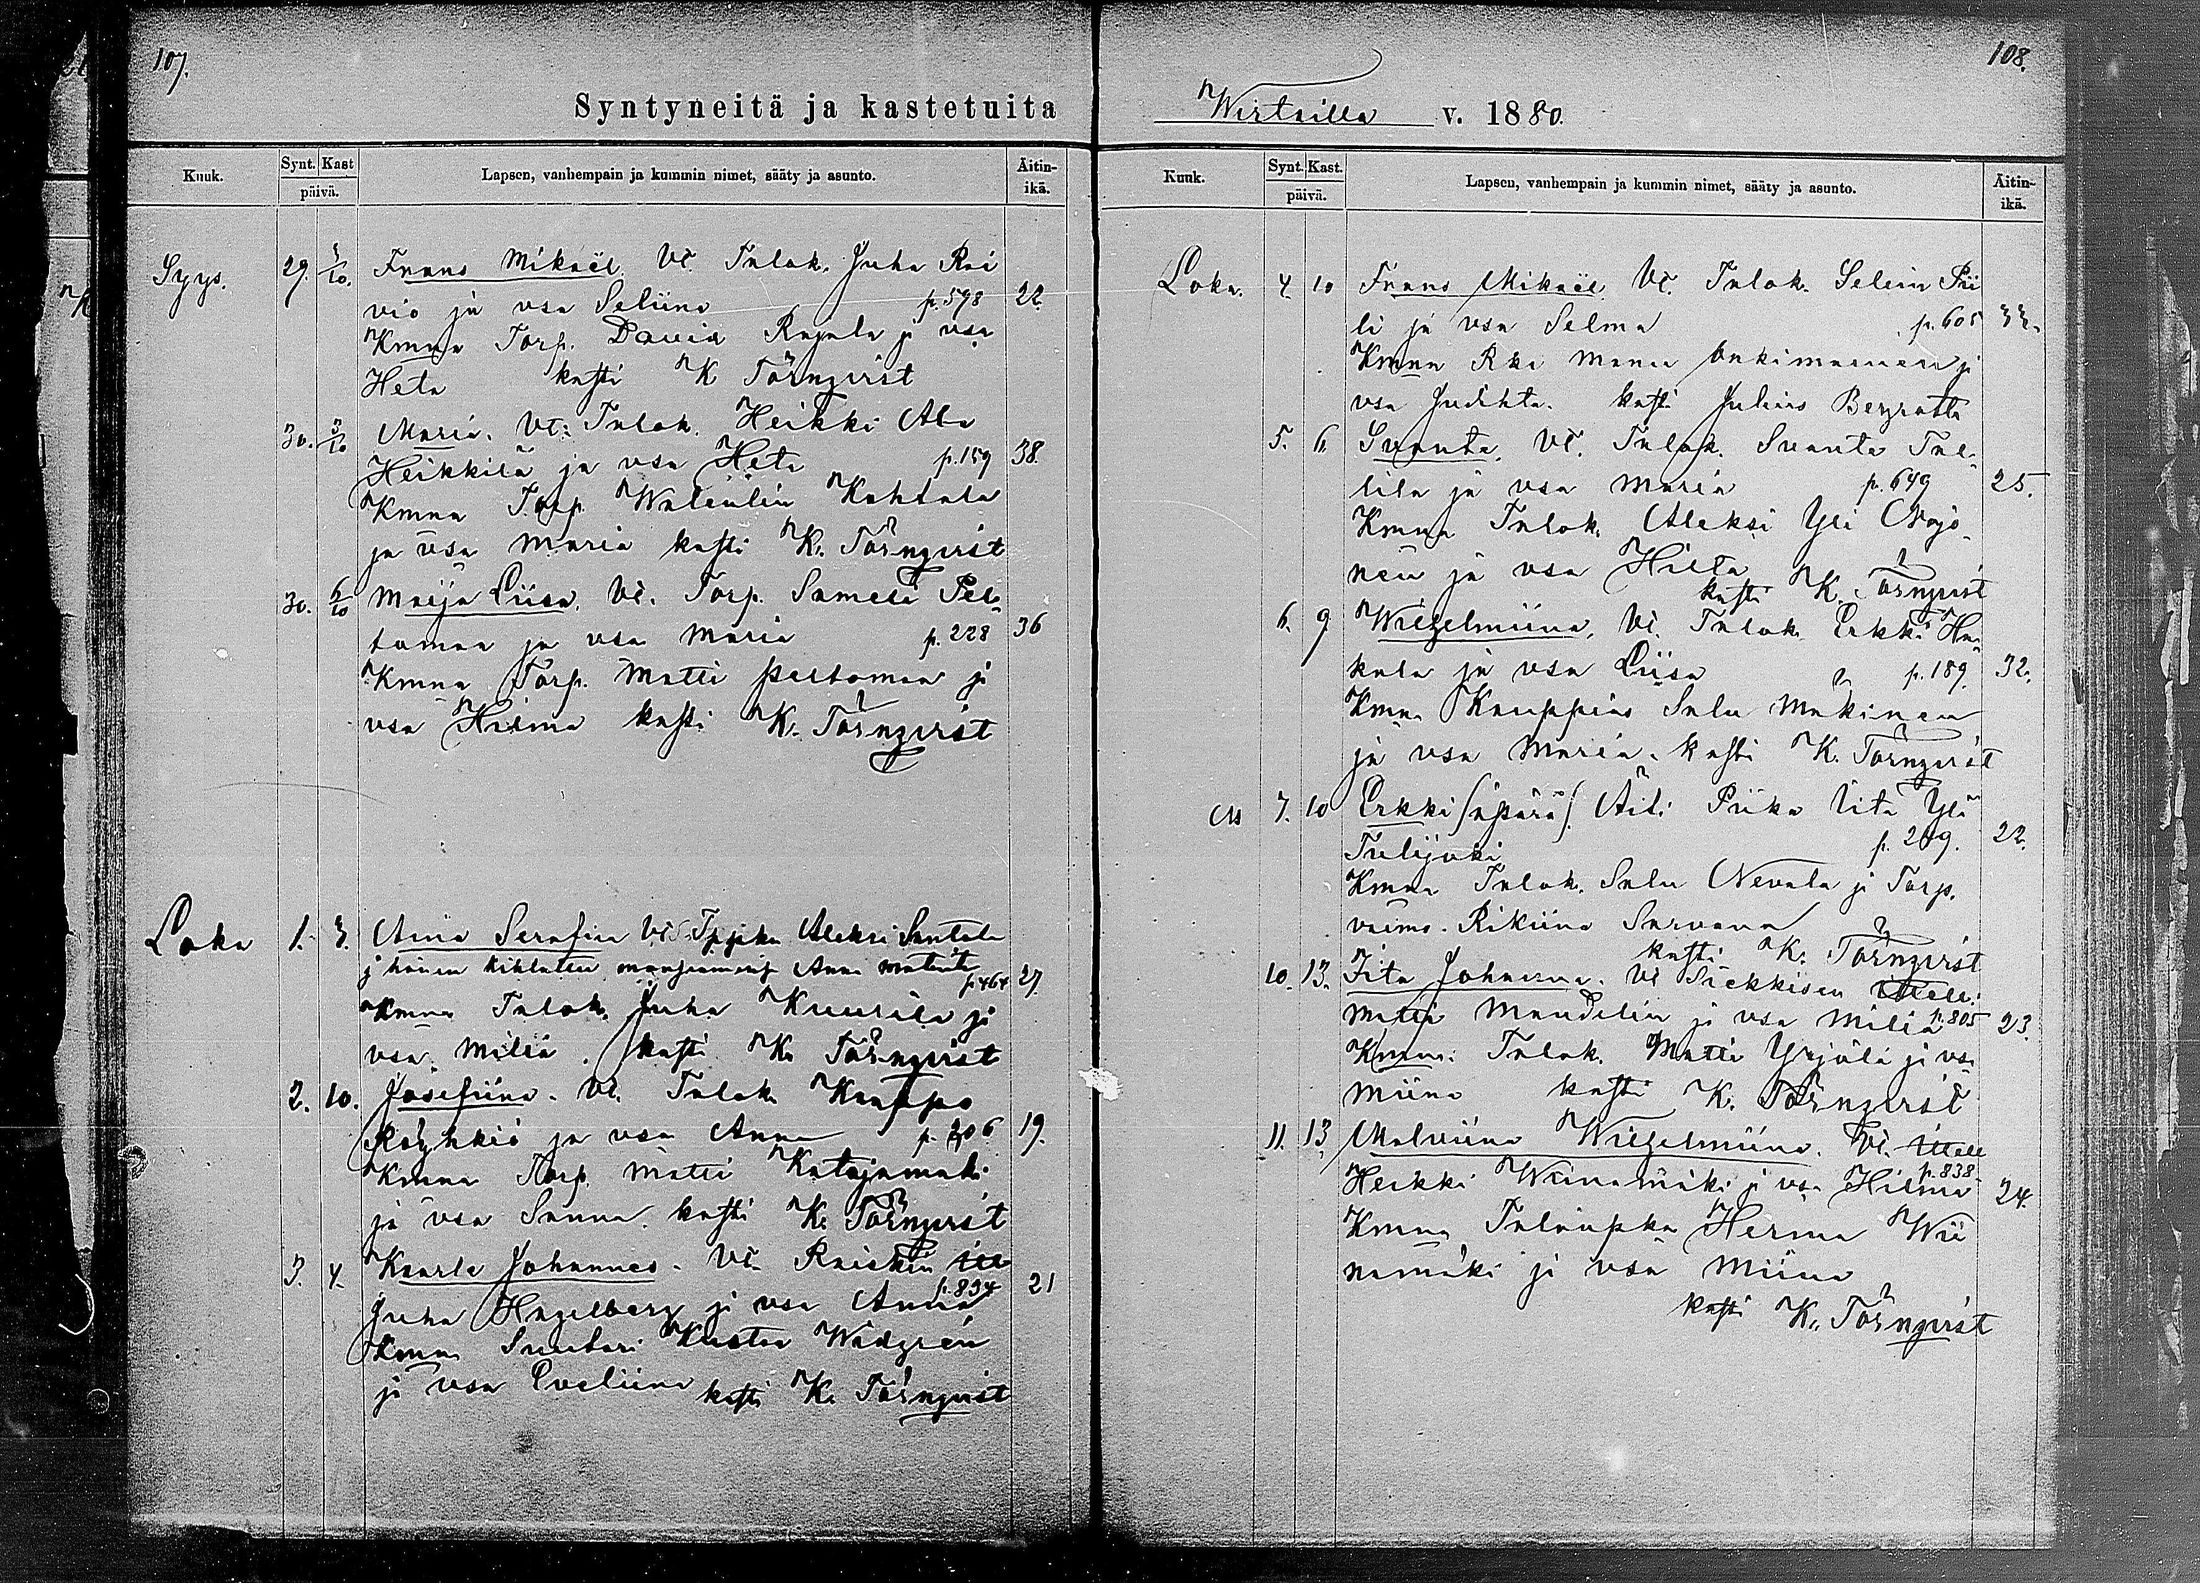 107.
Syntyneitä ja kastetuita
Kuuk.
Synt. Kast
päivä.
Lapsen, vanhempain ja kummin nimet, sääty ja asunto.
Äitin-
ikä.
Syys. 29. 3/10. Frans Mikaël. Vt. Talok. Juha Rai
vio ja vsa Seliina p. 578 22.
Kmna Torp. David Rajala j vsa
Heta kasti K Törnqvist
30. 3/10 Maria. Vt: Talok. Heikki Ala
Heikkilä ja vsa Heta p. 159 38.
Kmna Torp. Walentin Kahtala
ja vsa Maria kasti K. Törnqvist
30. 6/10 Maija Liisa. Vt. Torp. Sameli Pel
tomaa ja vsa Maria p. 228 36
Kmna Torp. Matti Peltomaa j
vsa Hilma kasti K. Törnqvist
Loka 1. 3. Aina Serafia Vt. Aleksi Santala
j hänen kihlattu Anna p 464 27.
Kmna Talok. Juha Kuurila ja
vsa Milia. kasti K. Törnqvist
2. 10. Josefiina. Vt. Talok. Kaappo
ja vsa Anna p. 306 19.
Kmna Torp. Matti Katajamäki
ja vsa Sanna. kasti K. Törnqvist
3. 4. Kaarle Johannes. Vt. Raiskin
Juha Hagelberg ja vsa Anna p. 834 21
Kmna Suutari Kustaa Widgrén
ja vsa Eveliina kasti K. Törnqvist
108.
Wirtailla v. 1880.
Kuuk.
Synt. Kast.
päivä.
Lapsen, vanhempain ja kummin nimet, sääty ja asunto.
Äitin-
ikä.
Loka. 4. 10 Frans Mikaël. Vt. Talok. Selim Pii
li ja vsa Selma p. 605 33.
Kmna Rki Manu Onkimainen j
vsa Judihta. kasti Julius Bergroth
5. 6. Svante. Vt. Talok. Svante Tal
lila ja vsa Maria p. 649 25.
Kmna Talok. Aleksi Yli Nojo
nen ja vsa Hilta
kasti K. Törnqvist
6. 9 Wilhelmiina. Vt. Talok. Erkki Ha
kala ja vsa Liisa p. 189. 32.
Kmna Kauppias Salu Mäkinen
ja vsa Maria. kasti K. Törnqvist
Als 7. 10 Erkki (äpärä). Äiti Piika Iita Ylä
Tulijoki p. 209. 22.
Kmna Talok. Salu Nevala j Torp.
vaimo. Rikiina Sarvana
kasti K. Törnqvist
10. 13. Iita Johanna. Vt
Matti Mandelin ja vsa Milia p. 805 23.
Kmna. Talok. Matti Yrjölä ja vsa
Miina kasti K. Törnqvist
11. 13. Malviina Wilhelmiina. Vt.
Heikki Wiinamäki ja vsa Hilma p. 838 24.
Kmna Herma Wii
namäki ja vsa Miina
kasti K. Törnqvist